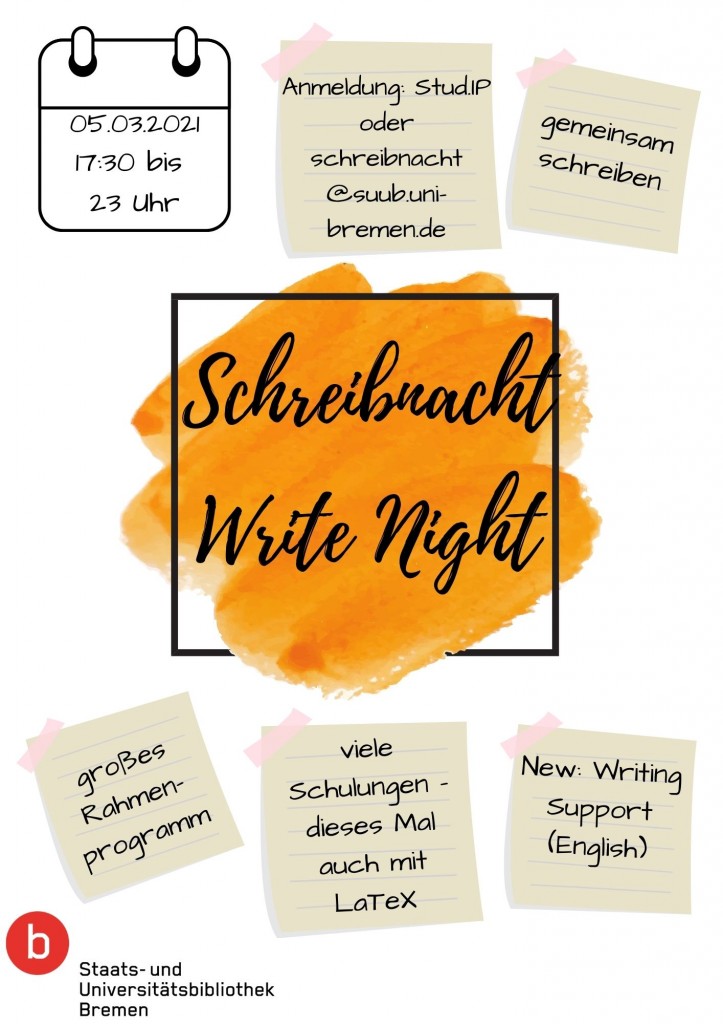 05.03.2021
17:30 bis
23 Uhr
Anmeldung: Stud.IP
oder
schreibnacht
@suub.uni-
bremen.de
gemeinsam
schreiben
Schreibnacht
Write Night
großes
Rahmen-
programm
viele
Schulungen -
dieses Mal
auch mit
LaTeX
New: Writing
Support
(English)
b
Staats- und
Universitätsbibliothek
Bremen